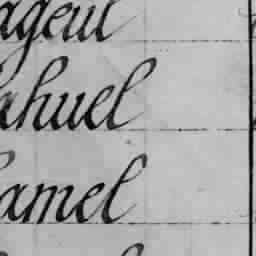 ageul
ahuel
amel